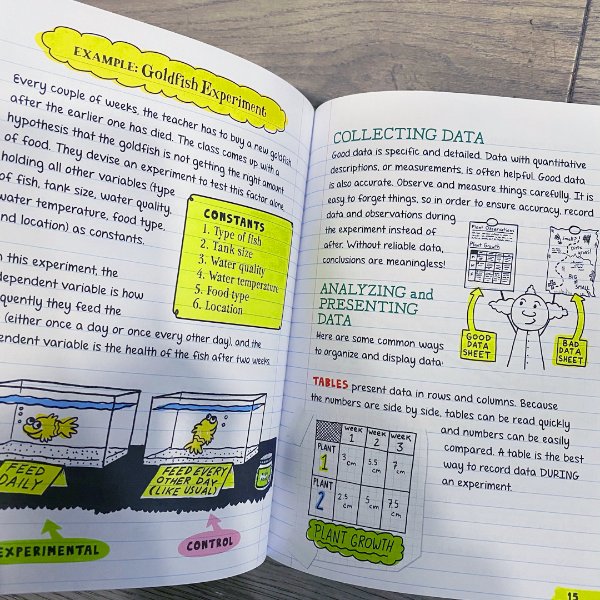 EXAMPLE: Goldfish Experiment
Every couple of weeks, the teacher has to buy a new goldfish
after the earlier one has died. The class comes up with a
hypothesis that the goldfish is not getting the right amount
of food. They devise an experiment to test this factor alone,
holding all other variables (type
of fish, tank size, water quality,
water temperature, food type,
and location) as constants.
CONSTANTS
1. Type of fish
2. Tank size
3. Water quality
4. Water temperature
5. Food type
6. Location
n this experiment, the
dependent variable is how
quently they feed the
(either once a day or once every other day), and the
endent variable is the health of the fish after two weeks.
FEED
DAILY
FEED EVERY
OTHER DAY
(LIKE USUAL)
EXPERIMENTAL
CONTROL
COLLECTING DATA
Good data is specific and detailed. Data with quantitative
descriptions, or measurements, is often helpful. Good data
is also accurate. Observe and measure things carefully. It is
easy to forget things, so in order to ensure accuracy, record
data and observations during
the experiment instead of
after. Without reliable data,
conclusions are meaningless!
Plant Observations
Plant Growth
GOOD
DATA
SHEET
BAD
DATA
SHEET
ANALYZING and
PRESENTING
DATA
Here are some common ways
to organize and display data:
TABLES present data in rows and columns. Because
the numbers are side by side, tables can be read quickly
and numbers can be easily
compared. A table is the best
way to record data DURING
an experiment.
WEEK 1 WEEK 2 WEEK 3
PLANT 1 3 cm 5.5 cm 7 cm
PLANT 2 2.5 cm 5 cm 7.5 cm
PLANT GROWTH
15